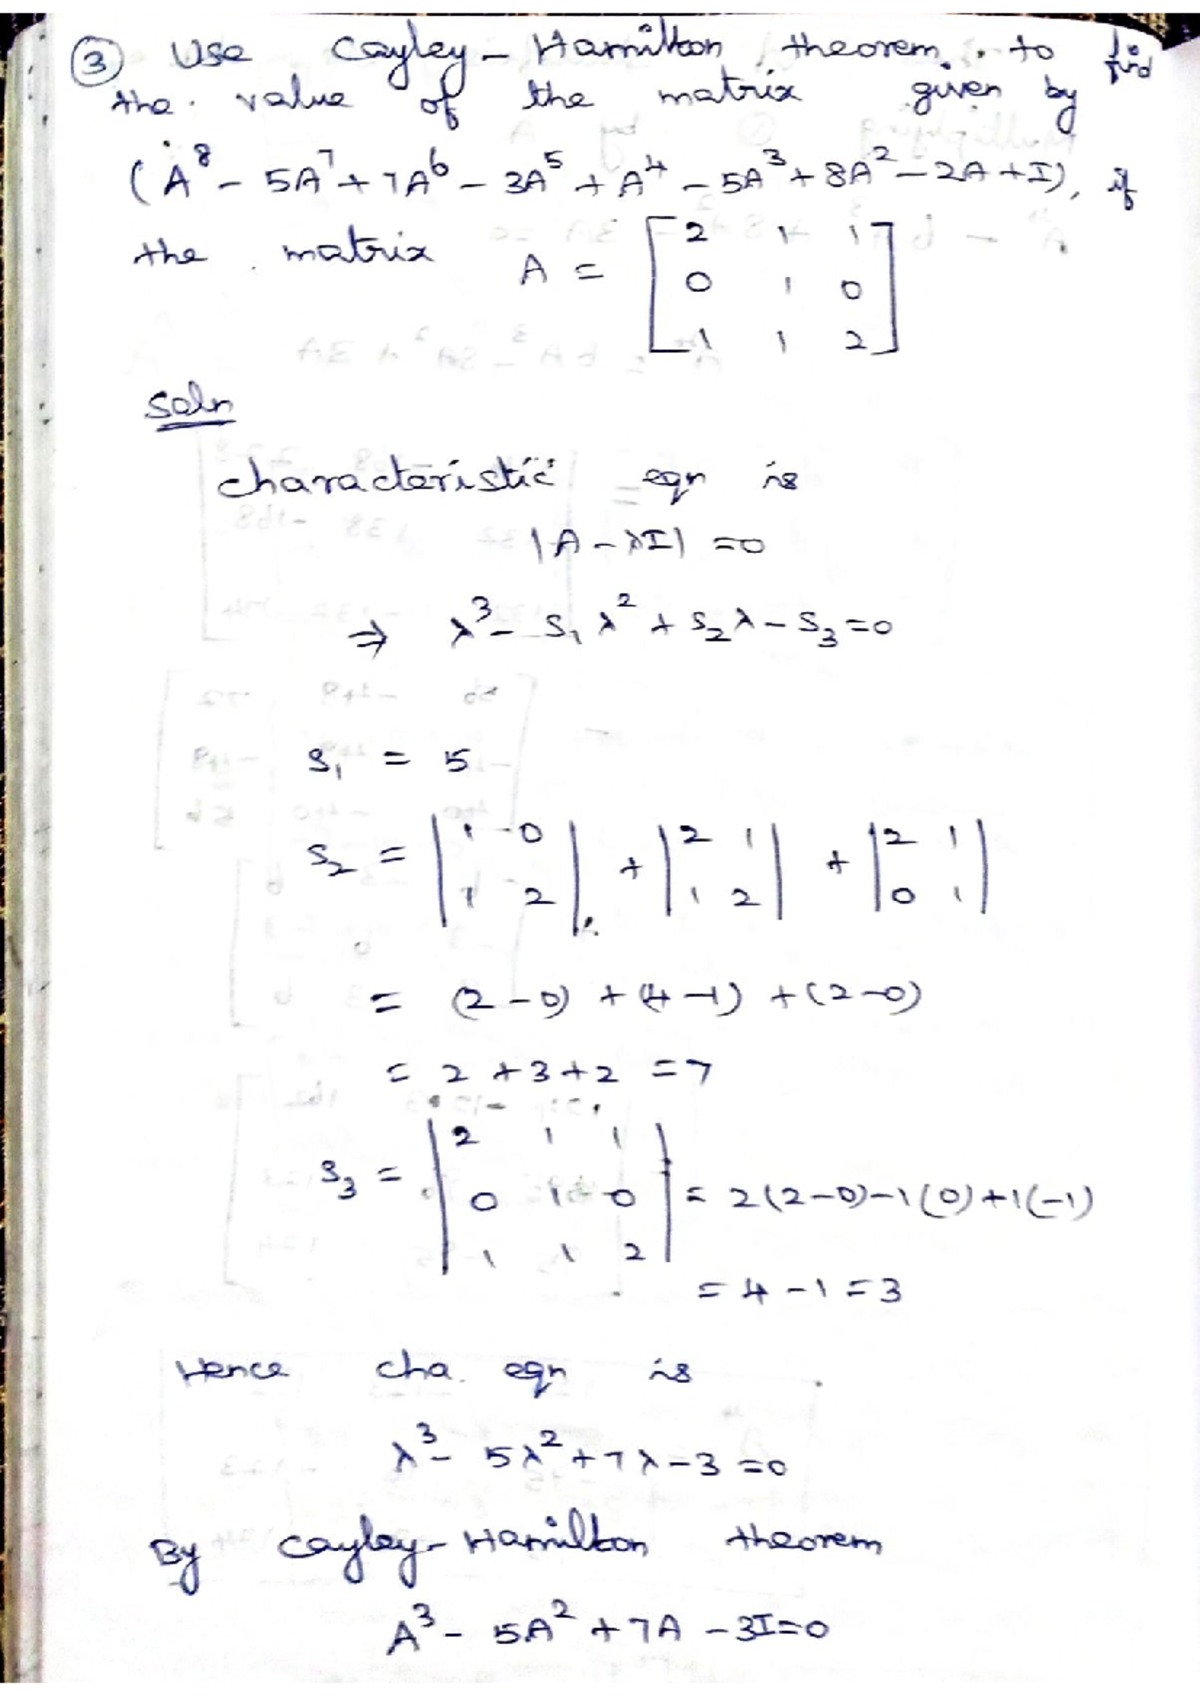 ③ Use Cayley-Hamilton theorem to find
the value of the matrix given by
(A⁸ - 5A⁷ + 7A⁶ - 3A⁵ + A⁴ - 5A³ + 8A² - 2A + I), if
the matrix A = [2 1 1
0 1 0
1 1 2]
Soln
characteristic eqn is
|A - λI| = 0
⇒ λ³ - S₁λ² + S₂λ - S₃ = 0
S₁ = 5
S₂ = |1 0; 1 2| + |2 1; 1 2| + |2 1; 0 1|
= (2-0) + (4-1) + (2-0)
= 2 + 3 + 2 = 7
S₃ = |2 1 1; 0 1 0; 1 1 2| = 2(2-0) - 1(0) + 1(-1)
= 4 - 1 = 3
Hence cha. eqn is
λ³ - 5λ² + 7λ - 3 = 0
By Cayley-Hamilton theorem
A³ - 5A² + 7A - 3I = 0